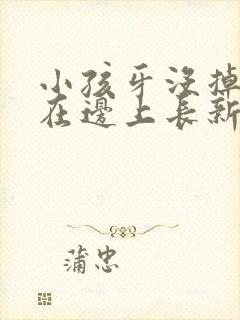 小孩牙没掉
在邊上長新
蒲忠